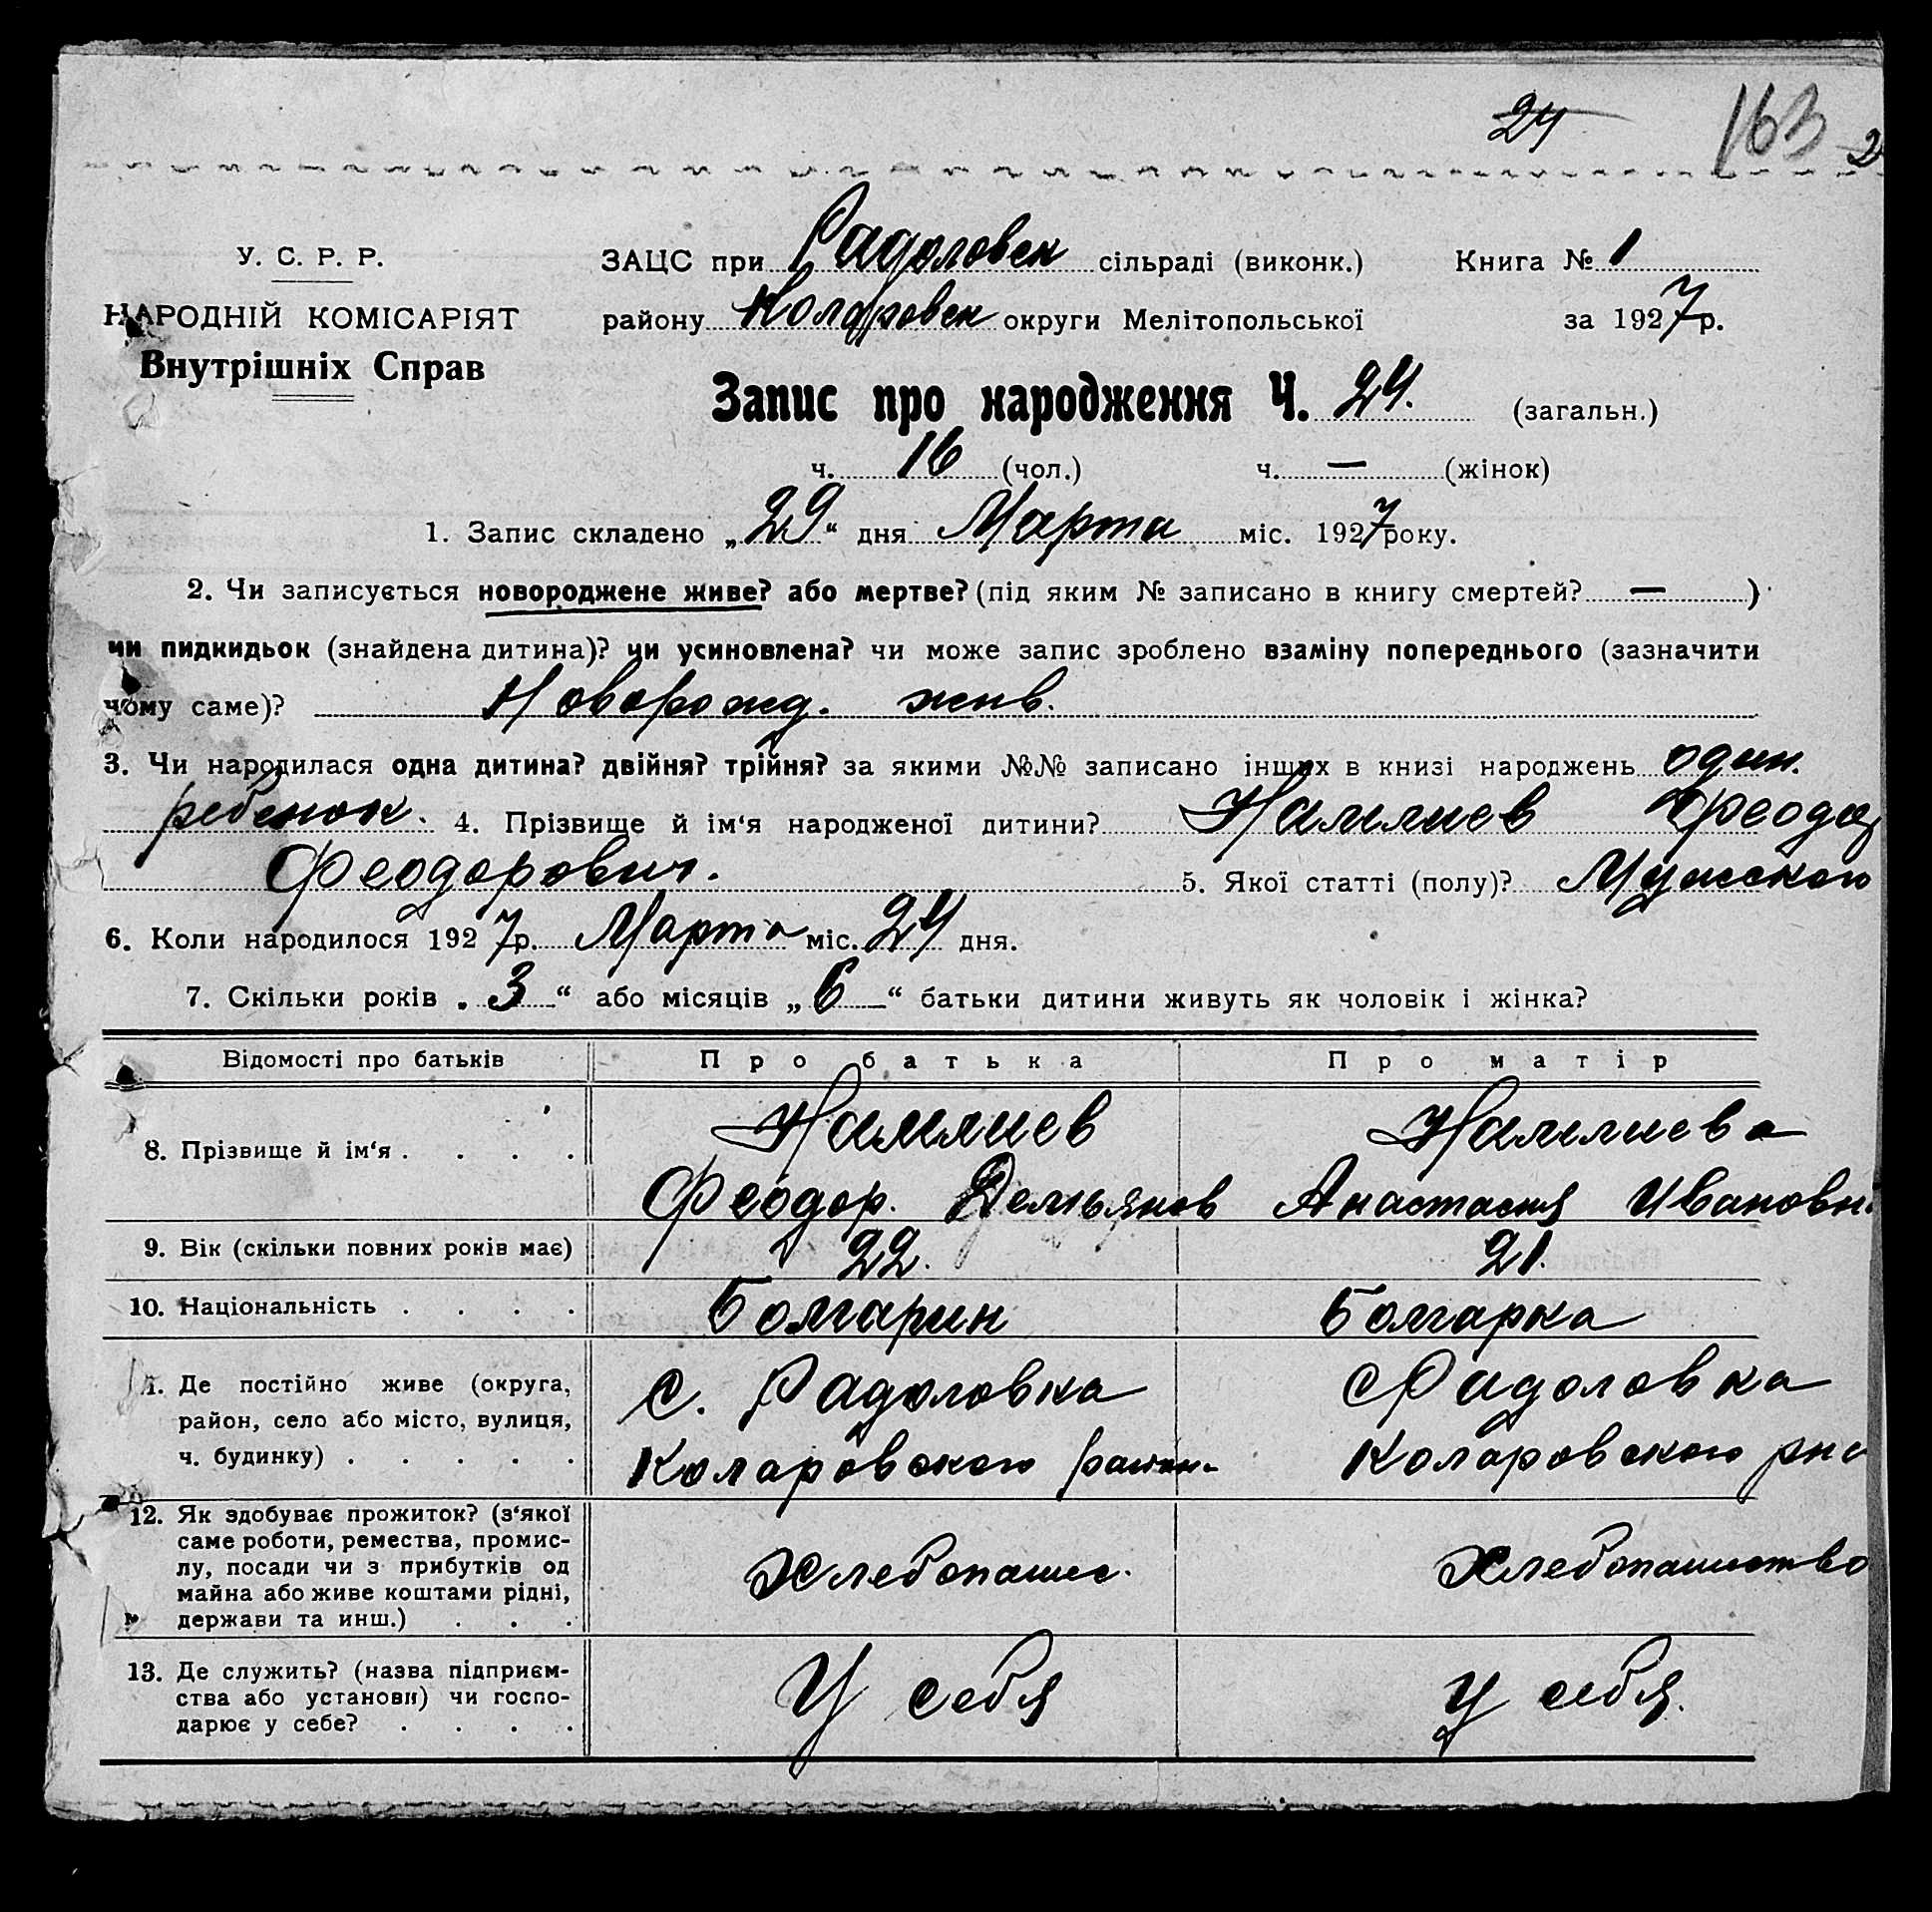 24 163 2
У. С. Р. Р. ЗАЦС при Радоловск сільраді (виконк.) Книга № 1
НАРОДНІЙ КОМІСАРІЯТ району Коларовск округи Мелітопольської за 1927 р.
Внутрішніх Справ
Запис про народження Ч. 24. (загальн.)
ч. 16 (чол.) ч. — (жінок)
1. Запис складено „29“ дня Марта міс. 1927 року.
2. Чи записується новороджене живе? або мертве? (під яким № записано в книгу смертей? — )
чи пидкидьок (знайдена дитина)? чи усиновлена? чи може запис зроблено взаміну попереднього (зазначити
чому саме)? Новорожд. жив.
3. Чи народилася одна дитина? двійня? трійня? за якими №№ записано інших в книзі народжень один.
ребенок. 4. Прізвище й ім‘я народженої дитини? Налиев Феодо
Феодорович. 5. Якої статті (полу)? Мужского
6. Коли народилося 1927 р. Марта міс. 24 дня.
7. Скільки років „3“ або місяців „6“ батьки дитини живуть як чоловік і жінка?
Відомості про батьків Про батька Про матір
8. Прізвище й ім‘я . . . . Феодор. Демьянов Анастасия Ивановн
9. Вік (скільки повних років має) 22. 21.
10. Національність . . . . Болгарин Болгарка
11. Де постійно живе (округа, с. Радоловка с Радоловка
район, село або місто, вулиця,
ч. будинку) . . . . . Коларовского район. Коларовского
12. Як здобуває прожиток? (з‘якої
саме роботи, ремества, промис-
лу, посади чи з прибутків од Хлебопашес. Хлебопашество
майна або живе коштами рідні,
держави та инш.) . . .
13. Де служить? (назва підприєм-
ства або установи) чи госпо- У себя У себя.
дарює у себе? . . . .